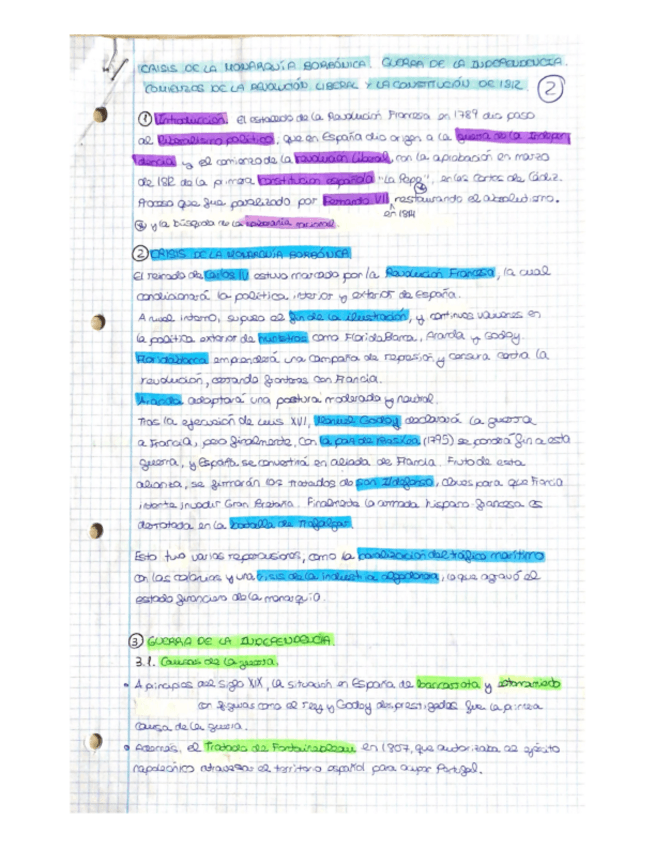 CRISIS DE LA MONARQUÍA BORBÓNICA. GUERRA DE LA INDEPENDENCIA.
COMIENZOS DE LA REVOLUCIÓN LIBERAL Y LA CONSTITUCIÓN DE 1812. 2
1 Introducción. El estallido de la Revolución Francesa en 1789 dio paso
al liberalismo político, que en España dio origen a la guerra de la Indepen
dencia y el comienzo de la revolución liberal, con la aprobación en marzo
de 1812 de la primera constitución española "La Pepa", en las Cortes de Cádiz.
Proceso que fue paralizado por Fernando VII, restaurando el absolutismo.
en 1814
y la búsqueda de la soberanía nacional.
2 CRISIS DE LA MONARQUÍA BORBÓNICA
El reinado de Carlos IV estuvo marcado por la Revolución Francesa, la cual
condicionará la política interior y exterior de España.
A nivel interno, supuso el fin de la ilustración, y continuos vaivenes en
la política exterior de ministros como Floridablanca, Aranda y Godoy.
Floridablanca emprenderá una campaña de represión y censura contra la
revolución, cerrando fronteras con Francia.
Aranda adoptará una postura moderada y neutral.
Tras la ejecución de Luis XVI, Manuel Godoy declarará la guerra
a Francia, pero finalmente, con la paz de Basilea (1795) se pondrá fin a esta
guerra, y España se convertirá en aliada de Francia. Fruto de esta
alianza, se firmarán los tratados de San Ildefonso, claves para que Francia
intente invadir Gran Bretaña. Finalmente la armada hispano-francesa es
derrotada en la batalla de Trafalgar.
Esto tuvo varias repercusiones, como la paralización del tráfico marítimo
con las colonias y una crisis de la industria algodonera, lo que agravó el
estado financiero de la monarquía.
3 GUERRA DE LA INDEPENDENCIA.
3.1. Causas de la guerra.
• A principios del siglo XIX, la situación en España de bancarrota y estancamiento
con figuras como el rey y Godoy desprestigiadas fue la primera
causa de la guerra.
• Además, el Tratado de Fontainebleau en 1807, que autorizaba al ejército
napoleónico atravesar el territorio español para ocupar Portugal.